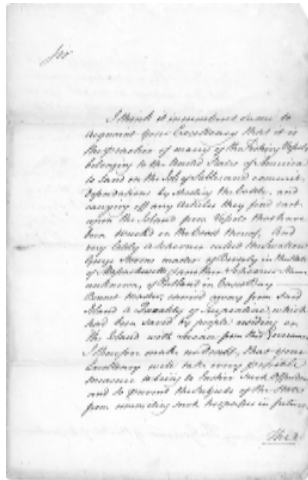 Sir
I think it incumbent on me to
acquaint your Excellency that it is
the practice of many of the Fishing Vessels
belonging to the United States of America
to Land on the Isle of Sable and commit
depredations by Stealing the Cattle, and
carrying off any Articles they find cast
upon the Island from Vessels that have
been Wrecked on the Coast thereof, And
very lately a Schooner called the
Master of Beverly in the State
of Massachusetts & another Schooner Name
unknown, of Portland in Casco Bay
Master, carried away from said
Island a Quantity of which
had been saved by people residing on
the Island with from this Government
I therefore make no doubt, that your
Excellency will take every possible
measure to such Offenders
and to prevent the Subjects of the State
from committing such trespasses in future.
The